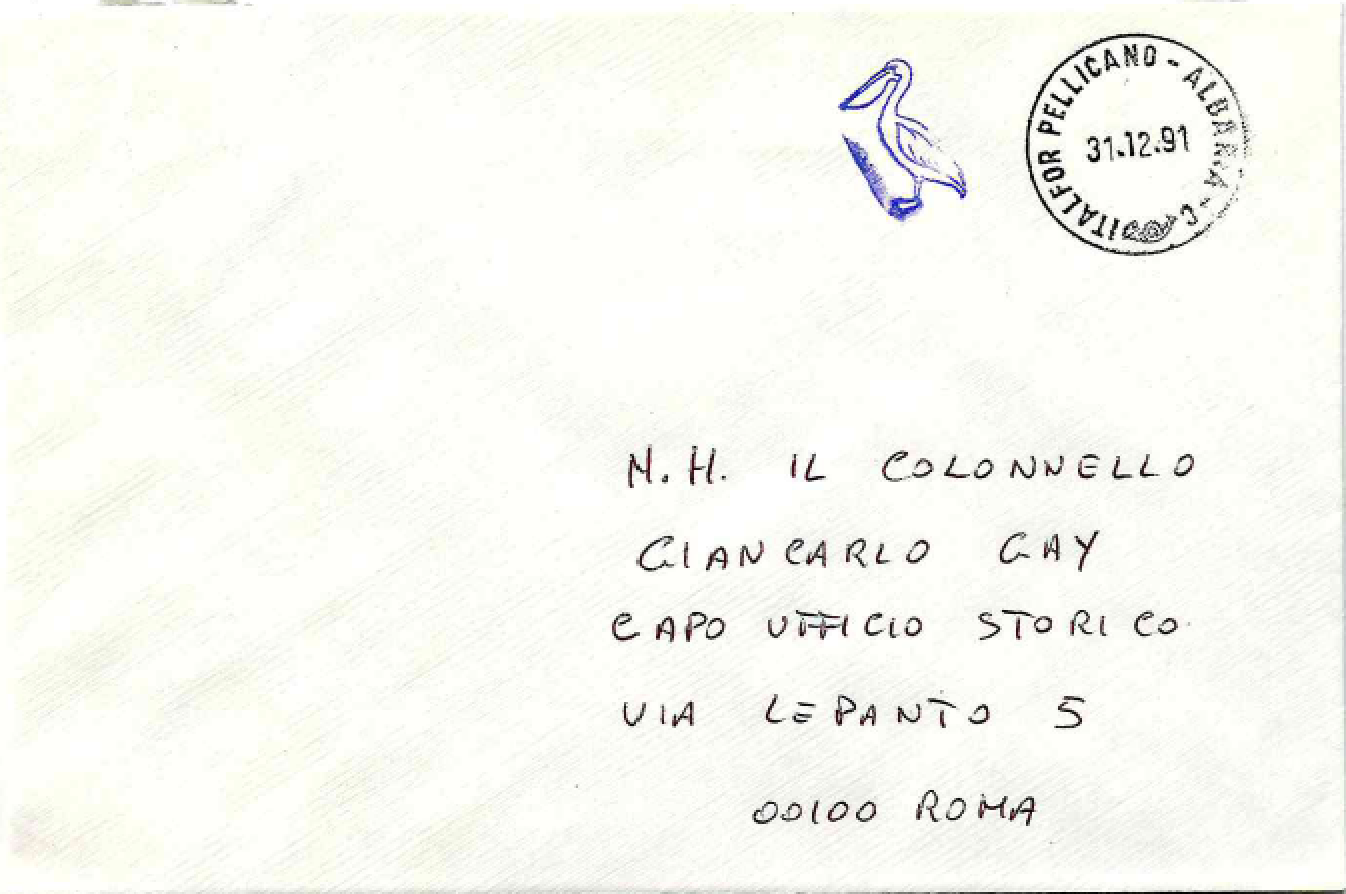 ITALFOR PELLICANO - ALBANIA - C
31.12.91
N.H. IL COLONNELLO
GIANCARLO GAY
CAPO UFFICIO STORICO
VIA LEPANTO 5
00100 ROMA